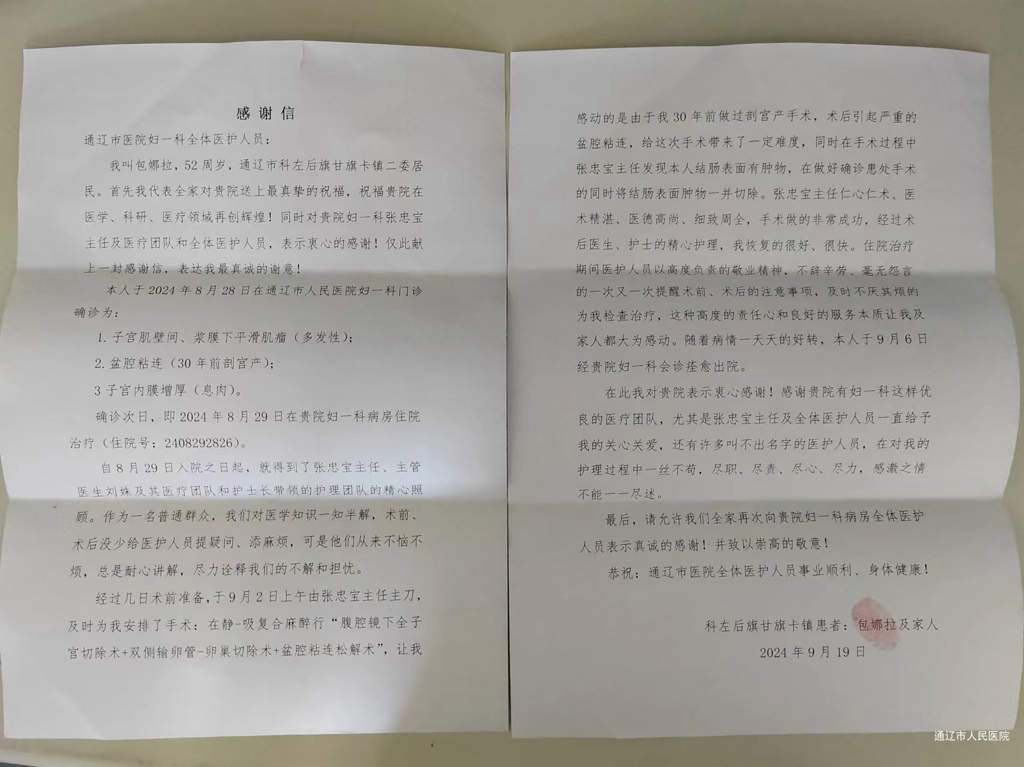 感谢信
通辽市医院妇一科全体医护人员：
我叫包娜拉，52 周岁，通辽市科左后旗甘旗卡镇二委居
民。首先我代表全家对贵院送上最真挚的祝福，祝福贵院在
医学、科研、医疗领域再创辉煌！同时对贵院妇一科张忠宝
主任及医疗团队和全体医护人员，表示衷心的感谢！仅此献
上一封感谢信，表达我最真诚的谢意！
本人于 2024 年 8 月 28 日在通辽市人民医院妇一科门诊
确诊为：
1. 子宫肌壁间、浆膜下平滑肌瘤（多发性）；
2. 盆腔粘连（30 年前剖宫产）；
3 子宫内膜增厚（息肉）。
确诊次日，即 2024 年 8 月 29 日在贵院妇一科病房住院
治疗（住院号：2408292826）。
自 8 月 29 日入院之日起，就得到了张忠宝主任、主管
医生刘姝及其医疗团队和护士长带领的护理团队的精心照
顾。作为一名普通群众，我们对医学知识一知半解，术前、
术后没少给医护人员提疑问、添麻烦，可是他们从来不恼不
烦，总是耐心讲解，尽力诠释我们的不解和担忧。
经过几日术前准备，于 9 月 2 日上午由张忠宝主任主刀，
及时为我安排了手术：在静-吸复合麻醉行“腹腔镜下全子
宫切除术+双侧输卵管-卵巢切除术+盆腔粘连松解术”，让我
感动的是由于我 30 年前做过剖宫产手术，术后引起严重的
盆腔粘连，给这次手术带来了一定难度，同时在手术过程中
张忠宝主任发现本人结肠表面有肿物，在做好确诊患处手术
的同时将结肠表面肿物一并切除。张忠宝主任仁心仁术、医
术精湛、医德高尚、细致周全，手术做的非常成功，经过术
后医生、护士的精心护理，我恢复的很好、很快。住院治疗
期间医护人员以高度负责的敬业精神，不辞辛劳、毫无怨言
的一次又一次提醒术前、术后的注意事项，及时不厌其烦的
为我检查治疗，这种高度的责任心和良好的服务本质让我及
家人都大为感动。随着病情一天天的好转，本人于 9 月 6 日
经贵院妇一科会诊痊愈出院。
在此我对贵院表示衷心感谢！感谢贵院有妇一科这样优
良的医疗团队，尤其是张忠宝主任及全体医护人员一直给予
我的关心关爱，还有许多叫不出名字的医护人员，在对我的
护理过程中一丝不苟，尽职、尽责、尽心、尽力，感激之情
不能一一尽述。
最后，请允许我们全家再次向贵院妇一科病房全体医护
人员表示真诚的感谢！并致以崇高的敬意！
恭祝：通辽市医院全体医护人员事业顺利、身体健康！
科左后旗甘旗卡镇患者：包娜拉及家人
2024 年 9 月 19 日
通辽市人民医院